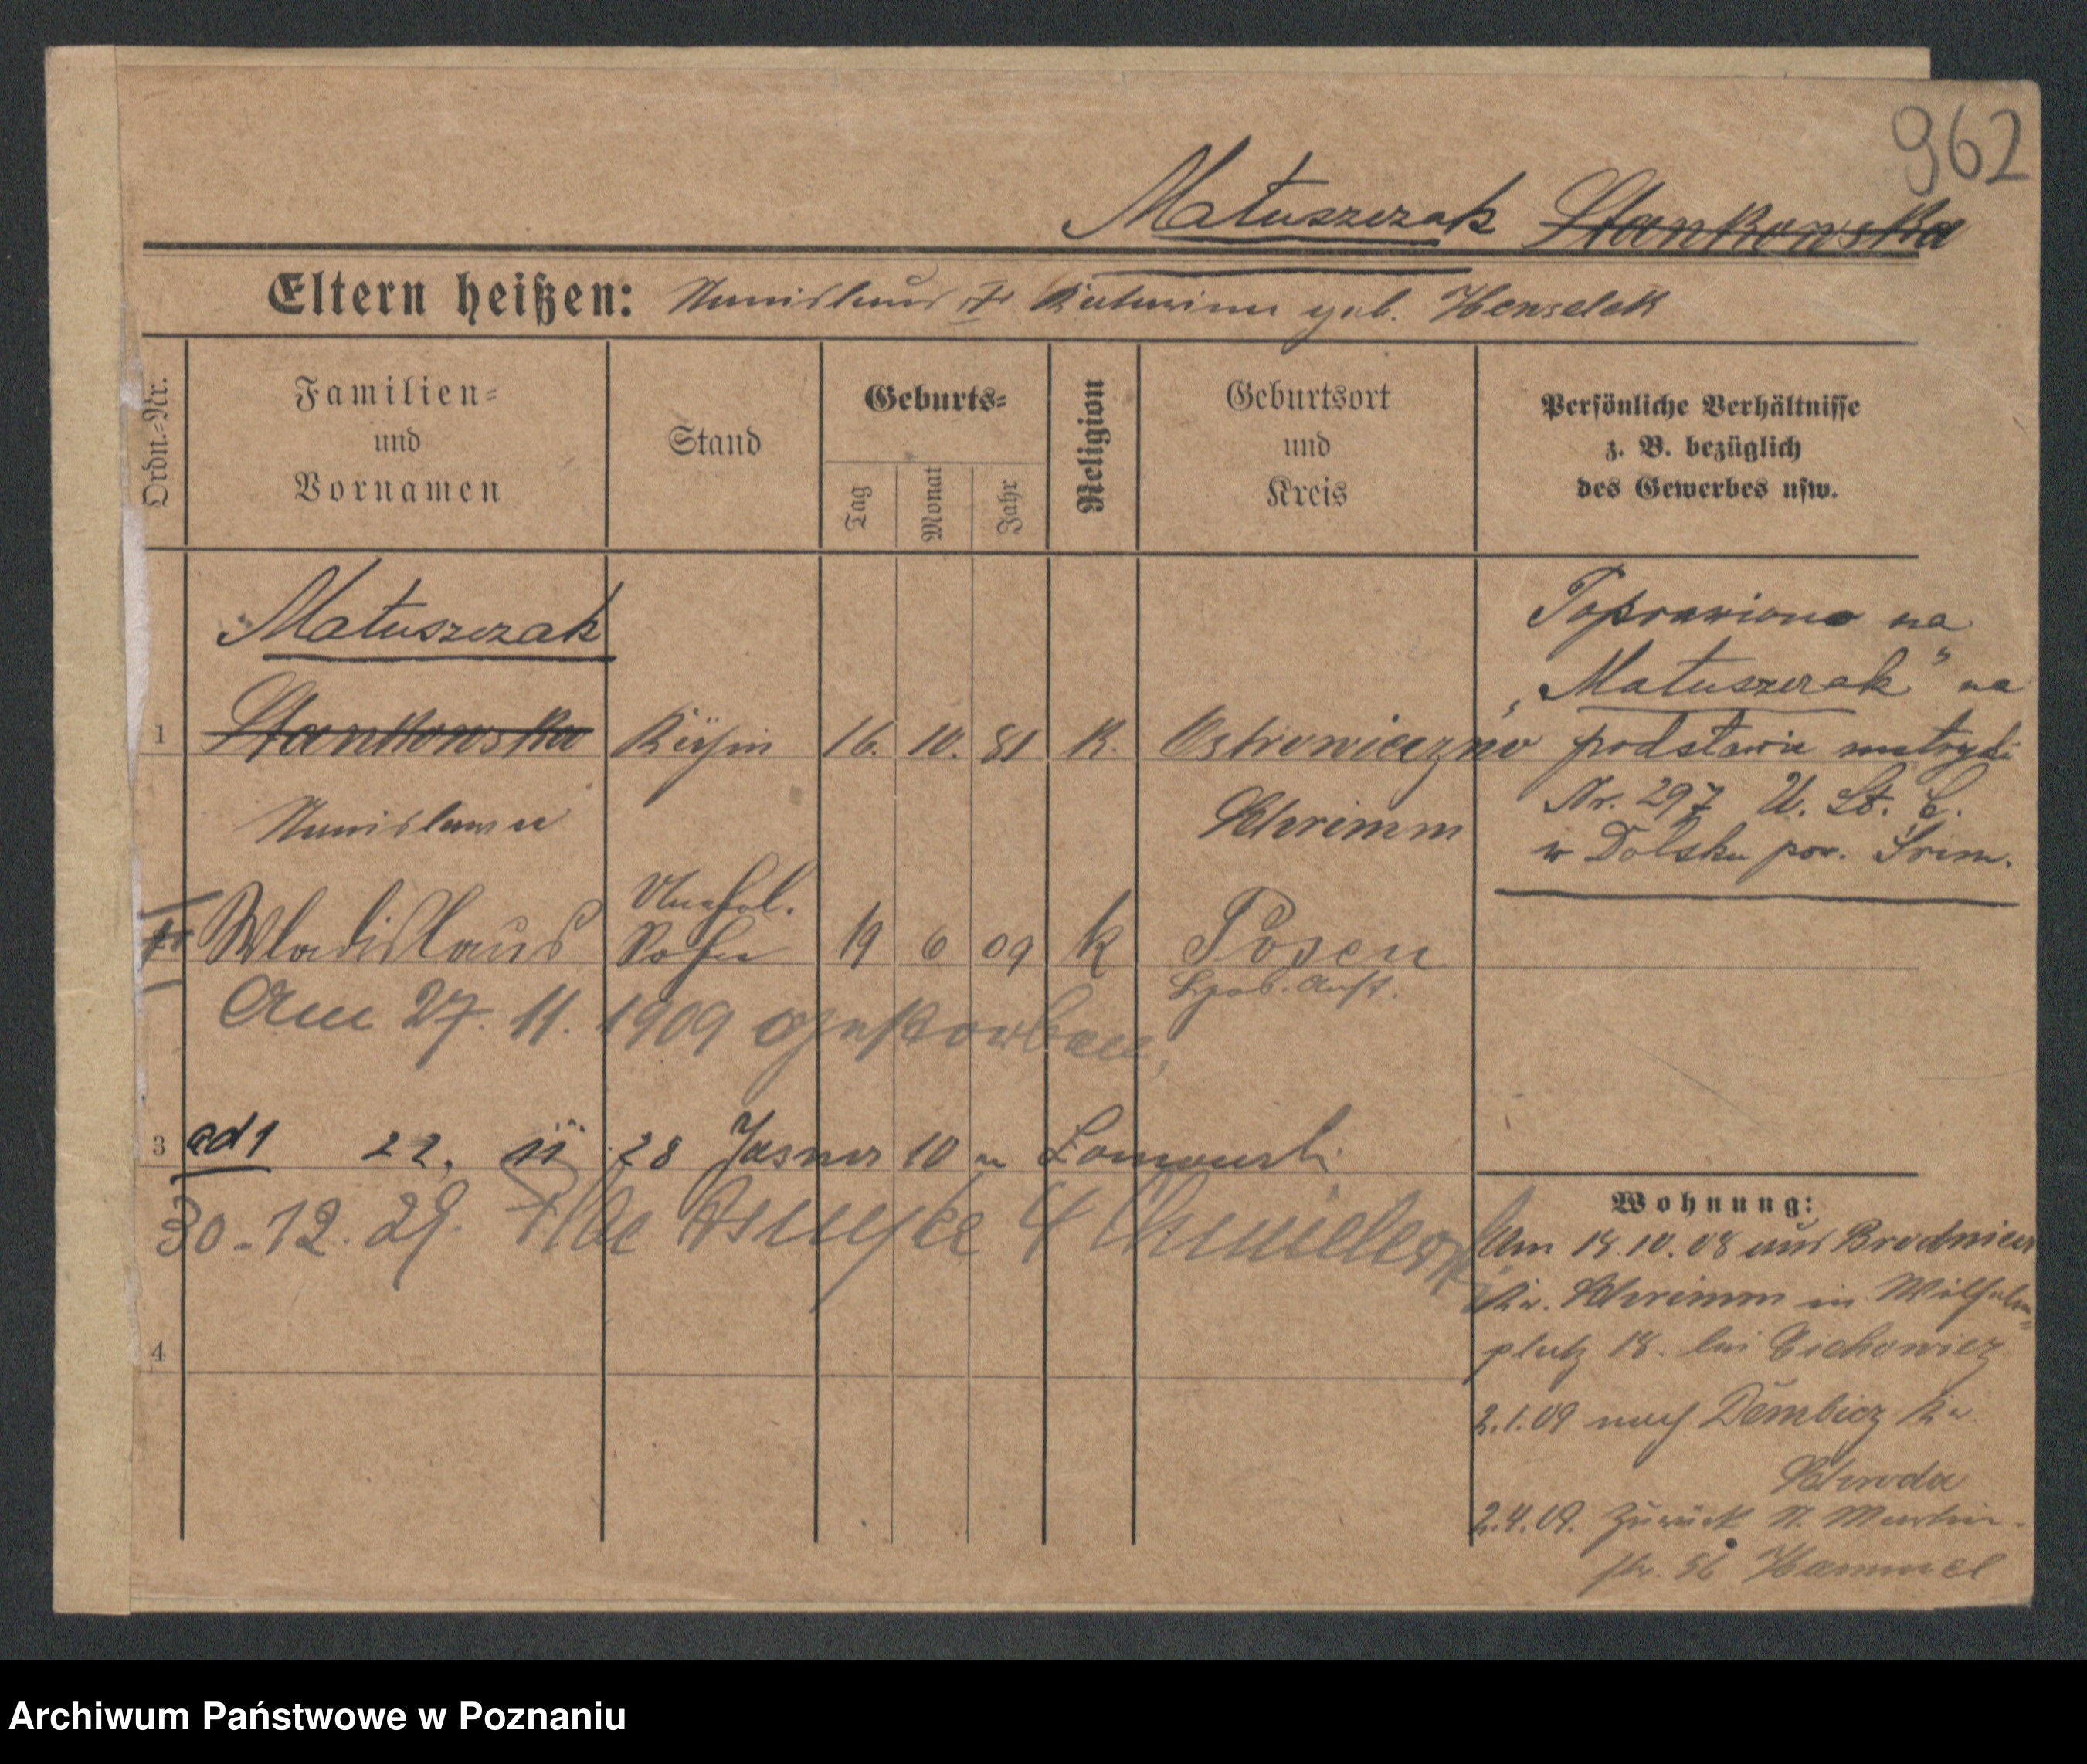 962
Matuszczak Stankowska
Eltern heißen: Stanislaus Katarina geb. Henselek
Ordn.-Nr.
Familien-
und
Vornamen
Stand
Geburts-
Tag
Monat
Jahr
Religion
Geburtsort
und
Kreis
Persönliche Verhältnisse
z. B. bezüglich
des Gewerbes usw.
Matuszczak
1 Stankowska Köchin 16. 10. 81 K. Ostrowieczno
Stanislawa Schrimm
Poprawiono na
„Matuszczak" na
podstawie metryki
Nr. 297 U. St. C.
w Dolsku pow. Śrem.
Unehel.
Wladislaus Sohn 19 6 09 k Posen
Hyeb. Anst.
Am 27. 11. 1909 gestorben,
3 ad 1 22. 11 28 Jasna 10 u
30-12.29.
4
Wohnung:
Am 18.10.08 aus Brodnica
Kr. Schrimm in Wilhelm=
platz 18. bei Cichowicz
2.1.09 nach Dembicz Kr.
Schroda
2.4.09. Zurück St. Martin-
str. 56 Hammel
Archiwum Państwowe w Poznaniu